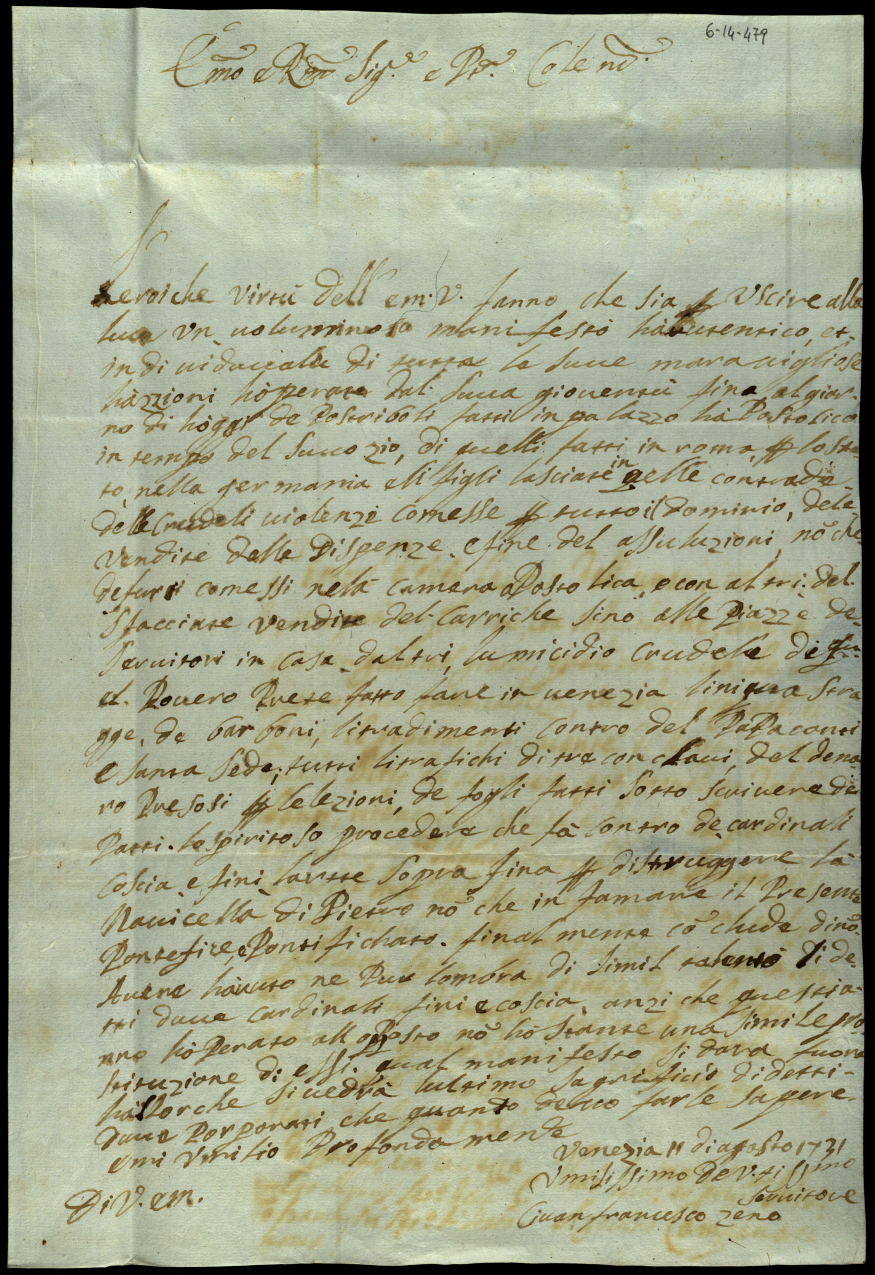 6-14-479
Emo e Rmo Sig.re e Pr. Colend.
heroiche virtù dell em: V. fanno che sia ꝑ Uscire alla
luce vn uoluminoso manifesto hautentico, et
indiuiduuale di tutte le suue marauigliose
hazzioni hoperate dal suua giouentù fina al gior-
no di hoggi de Postriboli fatti in palazzo ha Postolico
in tempo del suuo zio, di quelli fatti in roma, ꝑ losta-
to, nella germania eli figli lasciate in quelle contrade-
delle Crudeli uiolenze comesse ꝑ tutto il dominio, dele
vendite delle Dispenze. e fine del assuluzioni, nō che
de furti comessi nela camera aPosto lica, e con altri. del
Sfacciate vendite del Carriche sino alle Piazze de-
Seruitori in casa daltri, lumicidio crudele di qu-
el. Pouero Prete fatto fare in uenezia liniqua stra
gge. de barboni, litradimenti contro del PaPa conti
e santa sede, tutti litrafichi di tre conclaui, del dena
ro Presosi ꝑ lelezioni, de fogli fatti sotto scriuere de
Patti. lospiritoso procedere che fà contro de cardinali
Coscia e fini larte sopra fina ꝑ distruggere là
Nauicella di Pietro nō che in famare il Presente
Pontefice, e Pontifichato. finalmente cō clude di nō
Auere hauuto ne Pur lombra di simil talento di de-
tti duue cardinali fini e coscia, anzi che questia-
nno hoPerato all oPosto nō hostante una simile pro
stituzione di essi. qual manifesto si darà fuora
hallorche siuedrà lultimo sagrificio di detti-
duue Porporati che quanto deuo farle sapere.
emi Vmilio Profonda mente
Venezia 11 di agosto 1731
Di V. em.
Vmilissimo De V.tissimo
Seruitore
Giuan francesco zeno